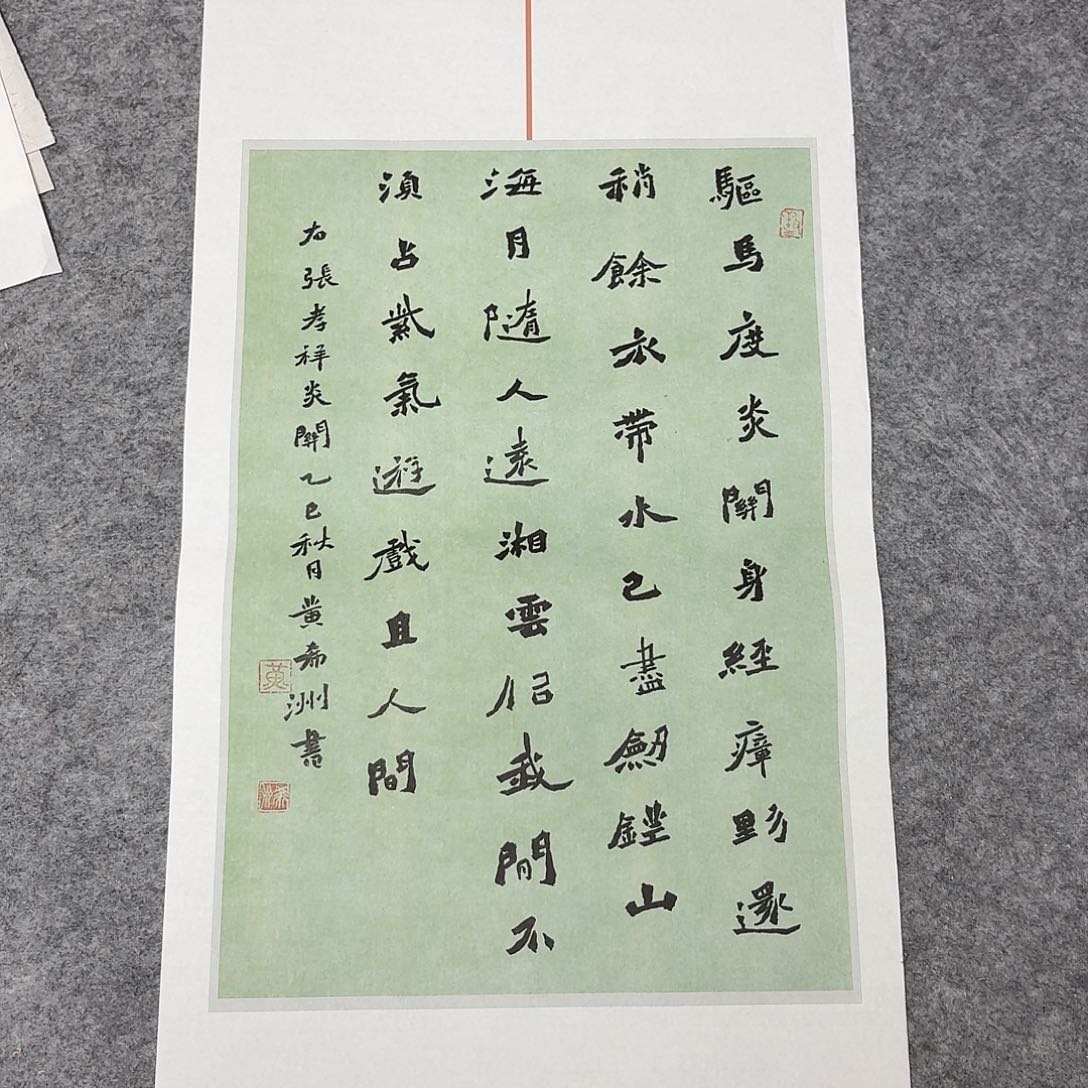 驅馬度炎關身經瘴影還
稍餘衣帶水已盡劍鋩山
海月隨人遠湘雲侣我閒不
須占紫氣遊戲且人間
右張孝祥炎關乙巳秋月黃希洲書
黃